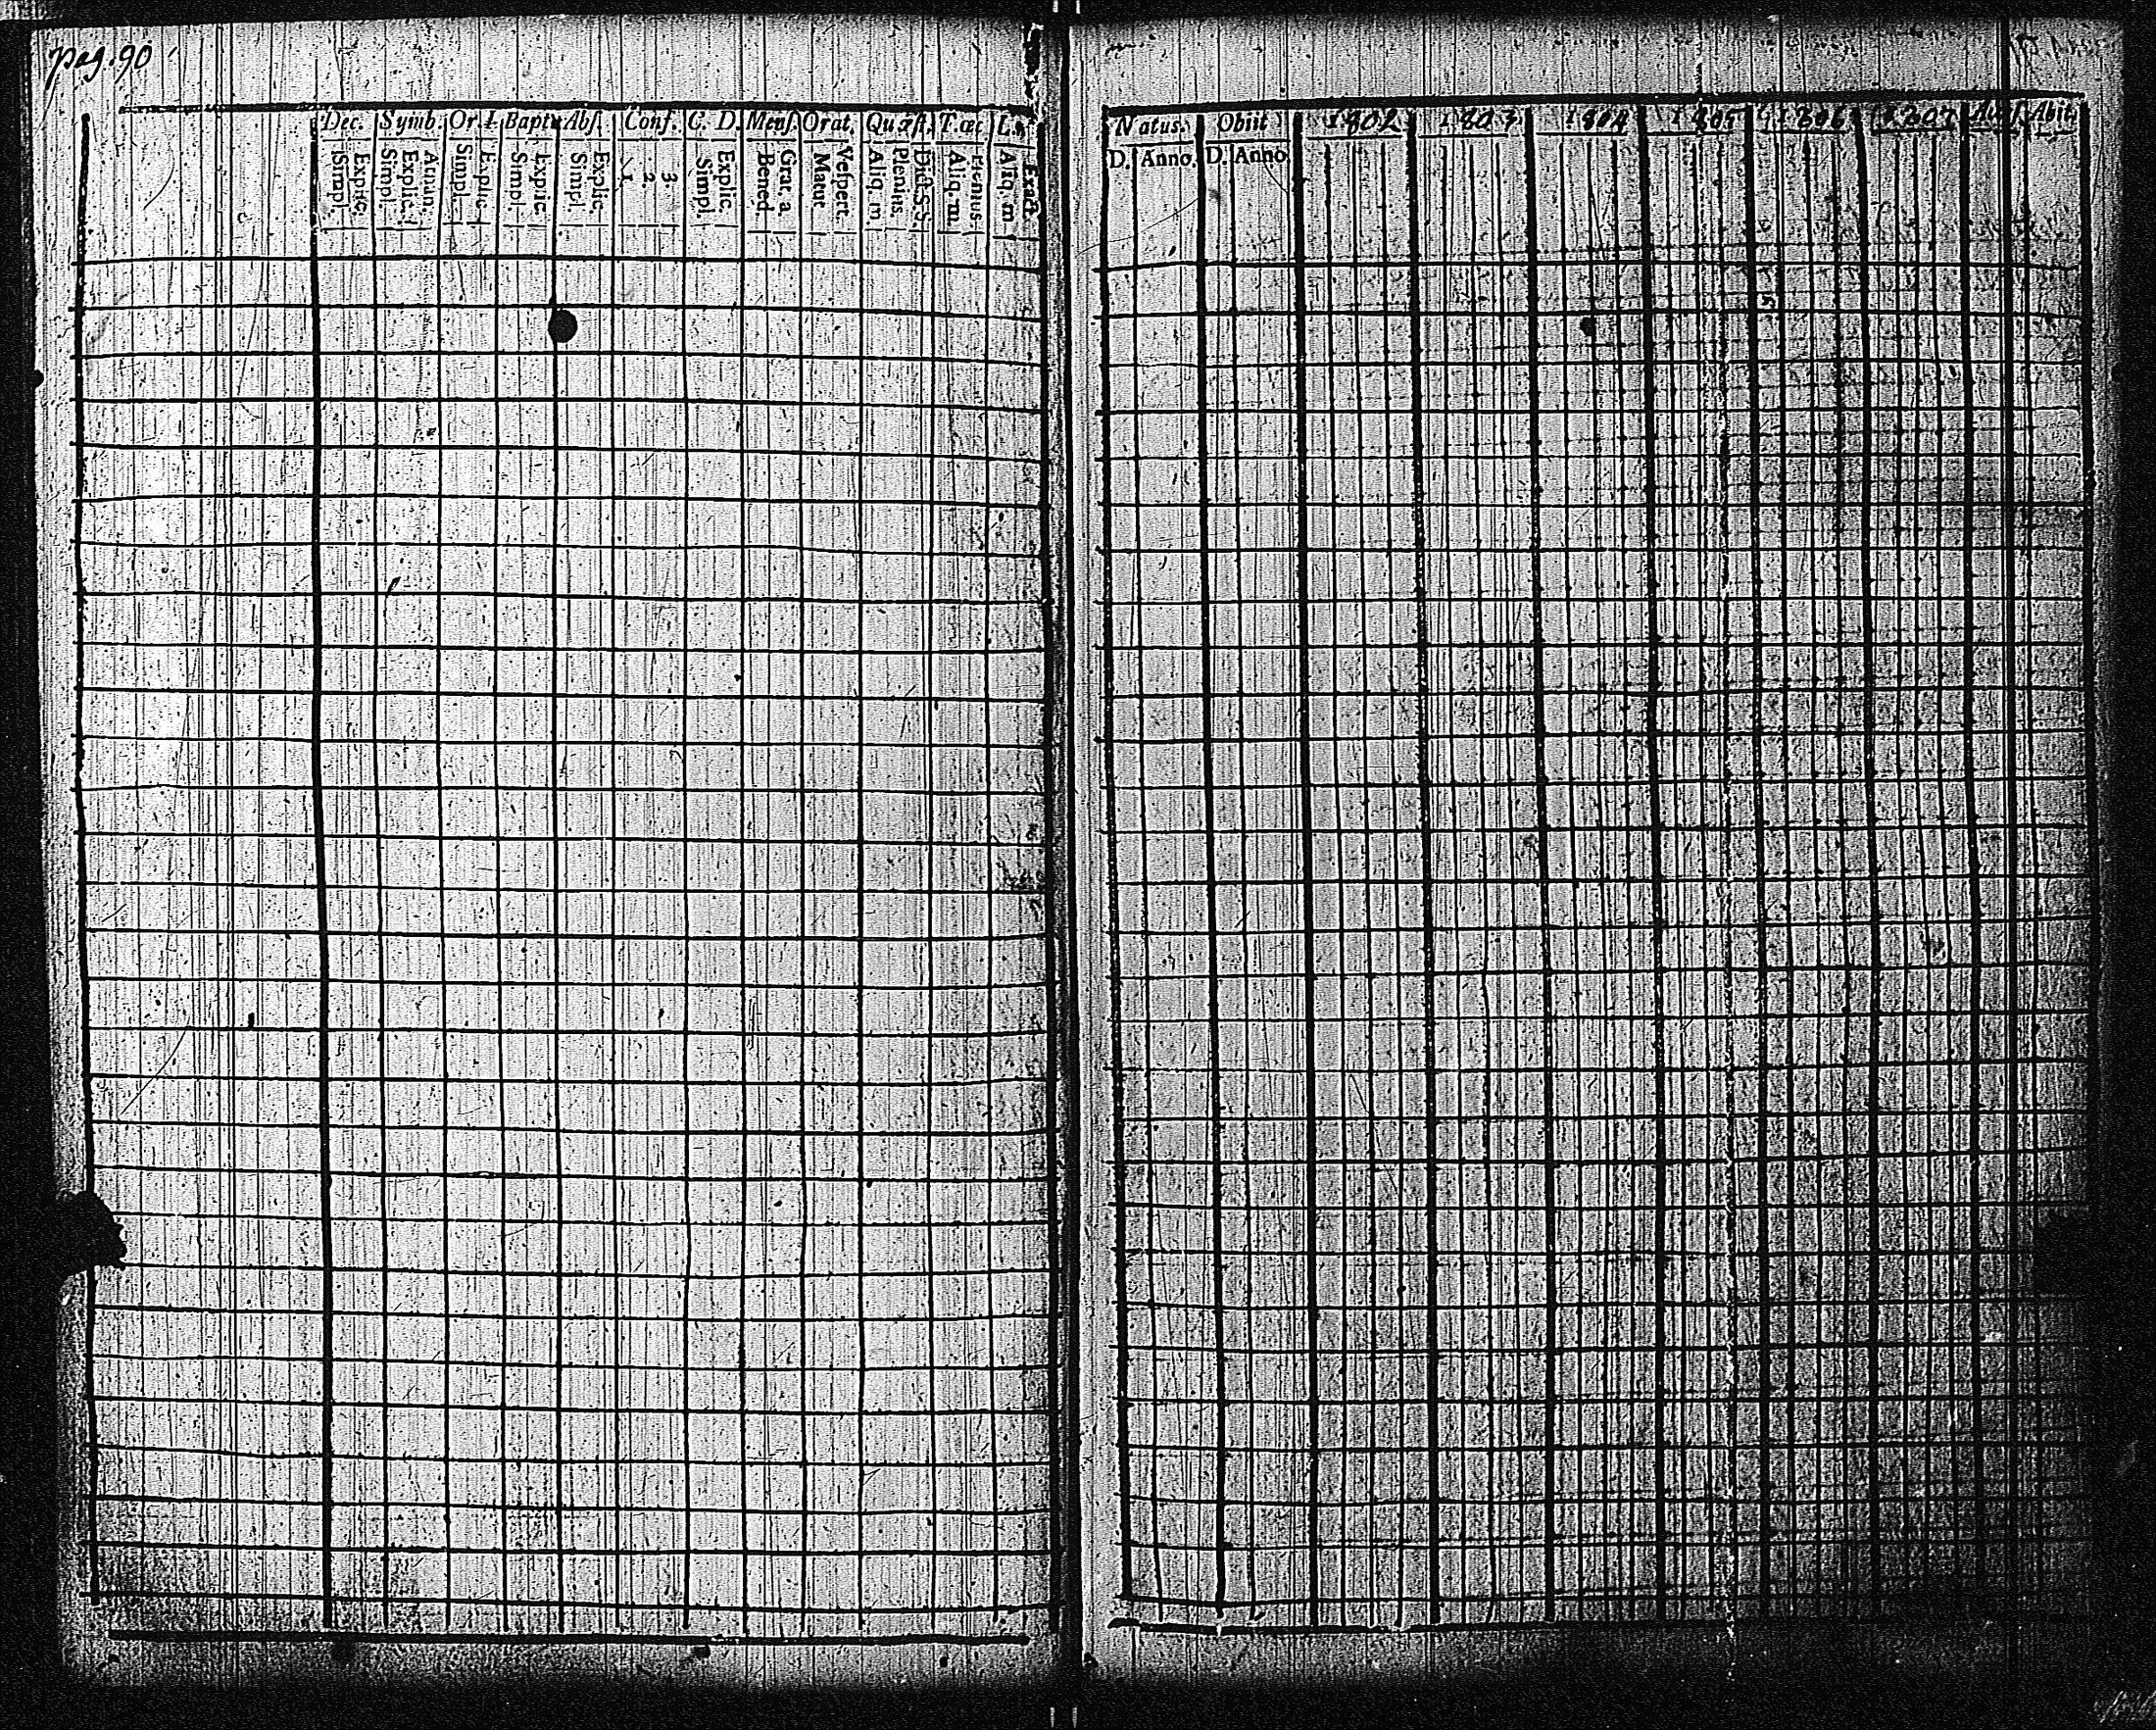 pag. 90
Dec. Symb. Or. I. Bapt. Abſ. Conf. C. D. Menſ. Orat. Quæſt. T. œc
Simpl. Explic. Simpl. Explic. Simpl. Explic. Simpl. Explic Simpl. Explic. 1. 2. 3. Simpl. Explic. Bened. Grat. a. Matut. Veſpert. Aliq. m. Plenius. Dict. S. S. Aliq. m. Plenius. Aliq. m Exact.
Natus. Obiit 1802 1803 1804 1805 1806 1807 Abit.
D. Anno. D. Anno